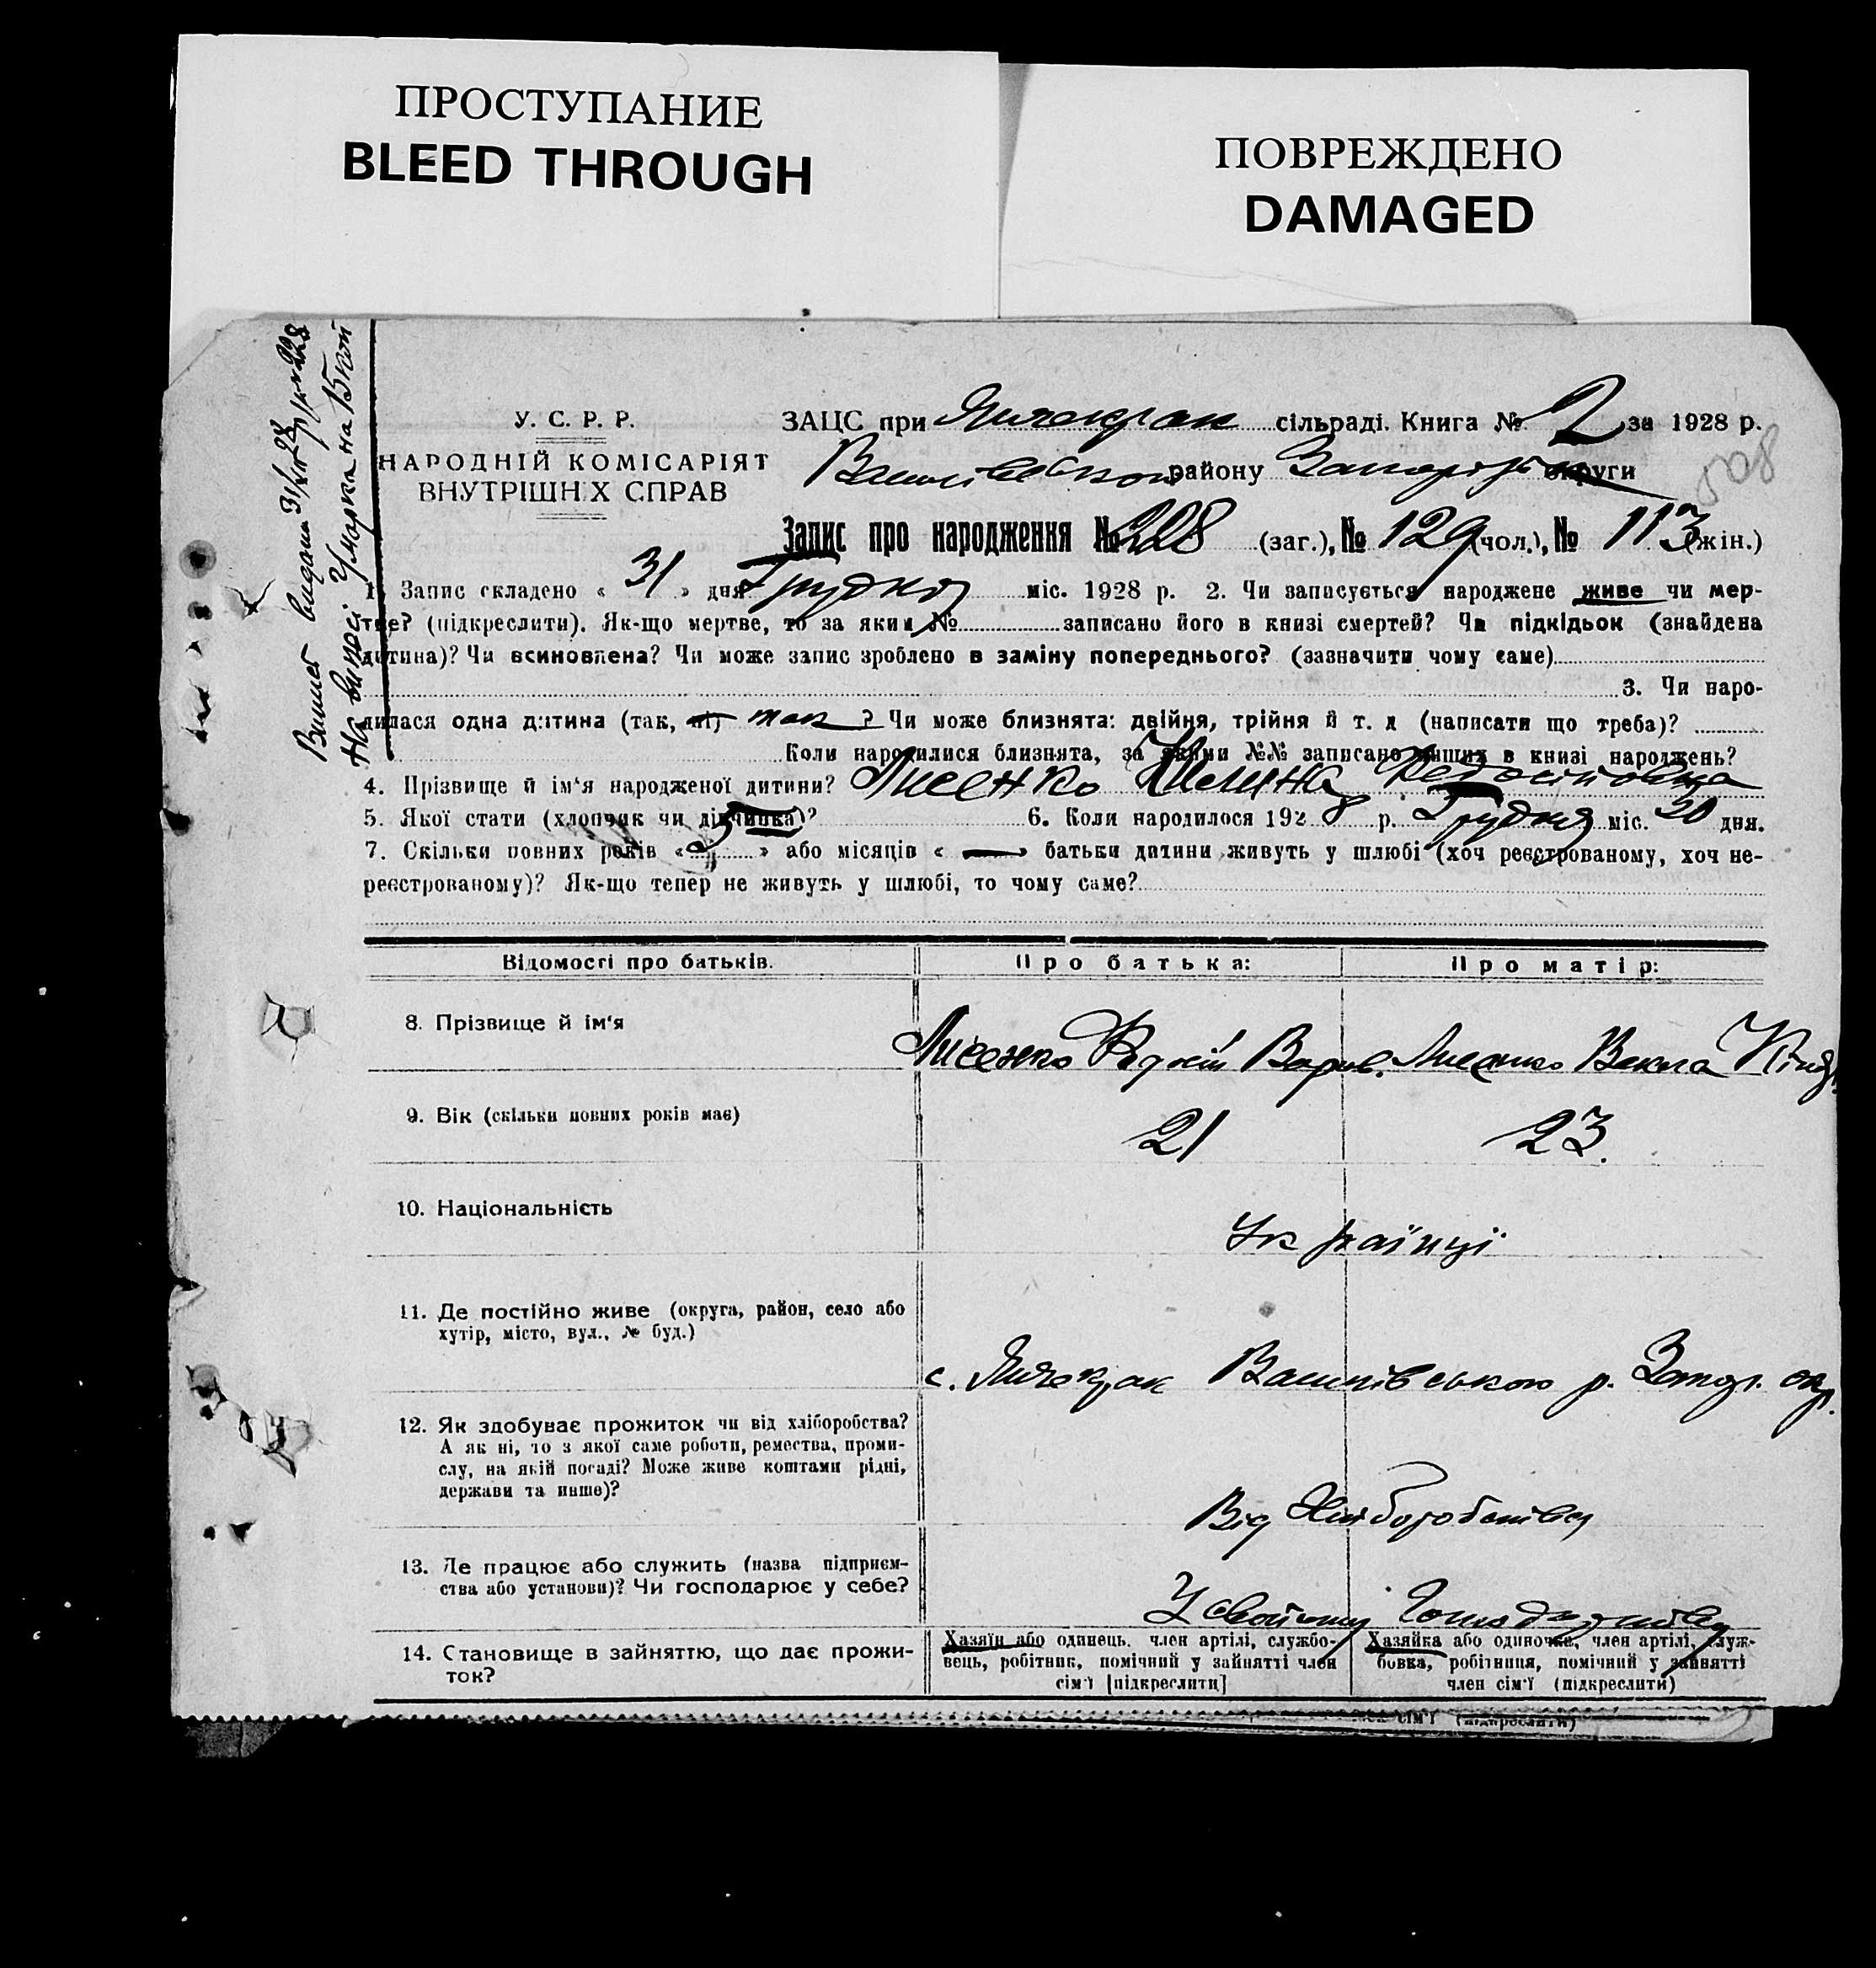 ПРОСТУПАНИЕ
BLEED THROUGH
ПОВРЕЖДЕНО
DAMAGED
Випис видан 31/XII 28
На виписі Умарка на 15 коп
У. С. Р. Р.
НАРОДНІЙ КОМІСАРІЯТ
ВНУТРІШНІХ СПРАВ
508
ЗАЦС при Янчекрак сільраді. Книга № 2 за 1928 р.
Василівського району Запоріз округи
Запис про народження № 228 (заг.), № 129 (чол.), № 113 (жін.)
1. Запис складено « 31 » дня Грудня міс. 1928 р. 2. Чи записується народжене живе чи мер-
тве? (підкреслити). Як-що мертве, то за яким № записано його в книзі смертей? Чи підкідьок (знайдена
дитина)? Чи всиновлена? Чи може запис зроблено в заміну попереднього? (зазначити чому саме)
3. Чи наро-
дилася одна дитина (так, ні) так ? Чи може близнята: двійня, трійня й т. д (написати що треба)?
Коли народилися близнята, за якими №№ записано инших в книзі народжень?
4. Прізвище й ім'я народженої дитини? Лисенко
5. Якої стати (хлопчик чи дівчинка)? 6. Коли народилося 1928 р. Грудня міс. 30 дня.
7. Скільки повних років « » або місяців « — » батьки дитини живуть у шлюбі (хоч реєстрованому, хоч не-
реєстрованому)? Як-що тепер не живуть у шлюбі, то чому саме?
Відомості про батьків. Про батька: Про матір:
8. Прізвище й ім'я
Лисенко Варив. Лисенко Векла Кінд.
9. Вік (скільки повних років має)
21 23.
10. Національність
Українці
11. Де постійно живе (округа, район, село або
хутір, місто, вул., № буд.)
с. Янчекрак Василівського р. Запор. окр.
12. Як здобуває прожиток чи від хліборобства?
А як ні, то з якої саме роботи, ремества, проми-
слу, на якій посаді? Може живе коштами рідні,
держави та инше)?
Від Хліборобства
13. Де працює або служить (назва підприєм-
ства або установи)? Чи господарює у себе?
У свойому Господарстві
14. Становище в зайняттю, що дає прожи-
ток?
Хазяїн або одинець. член артілі, службо-
вець, робітник, помічний у зайнятті член
сім'ї [підкреслити]
Хазяйка або одиночка, член артілі, служ-
бовка, робітниця, помічний у зайнятті
член сім'ї (підкреслити)
сім'ї (підкреслити)